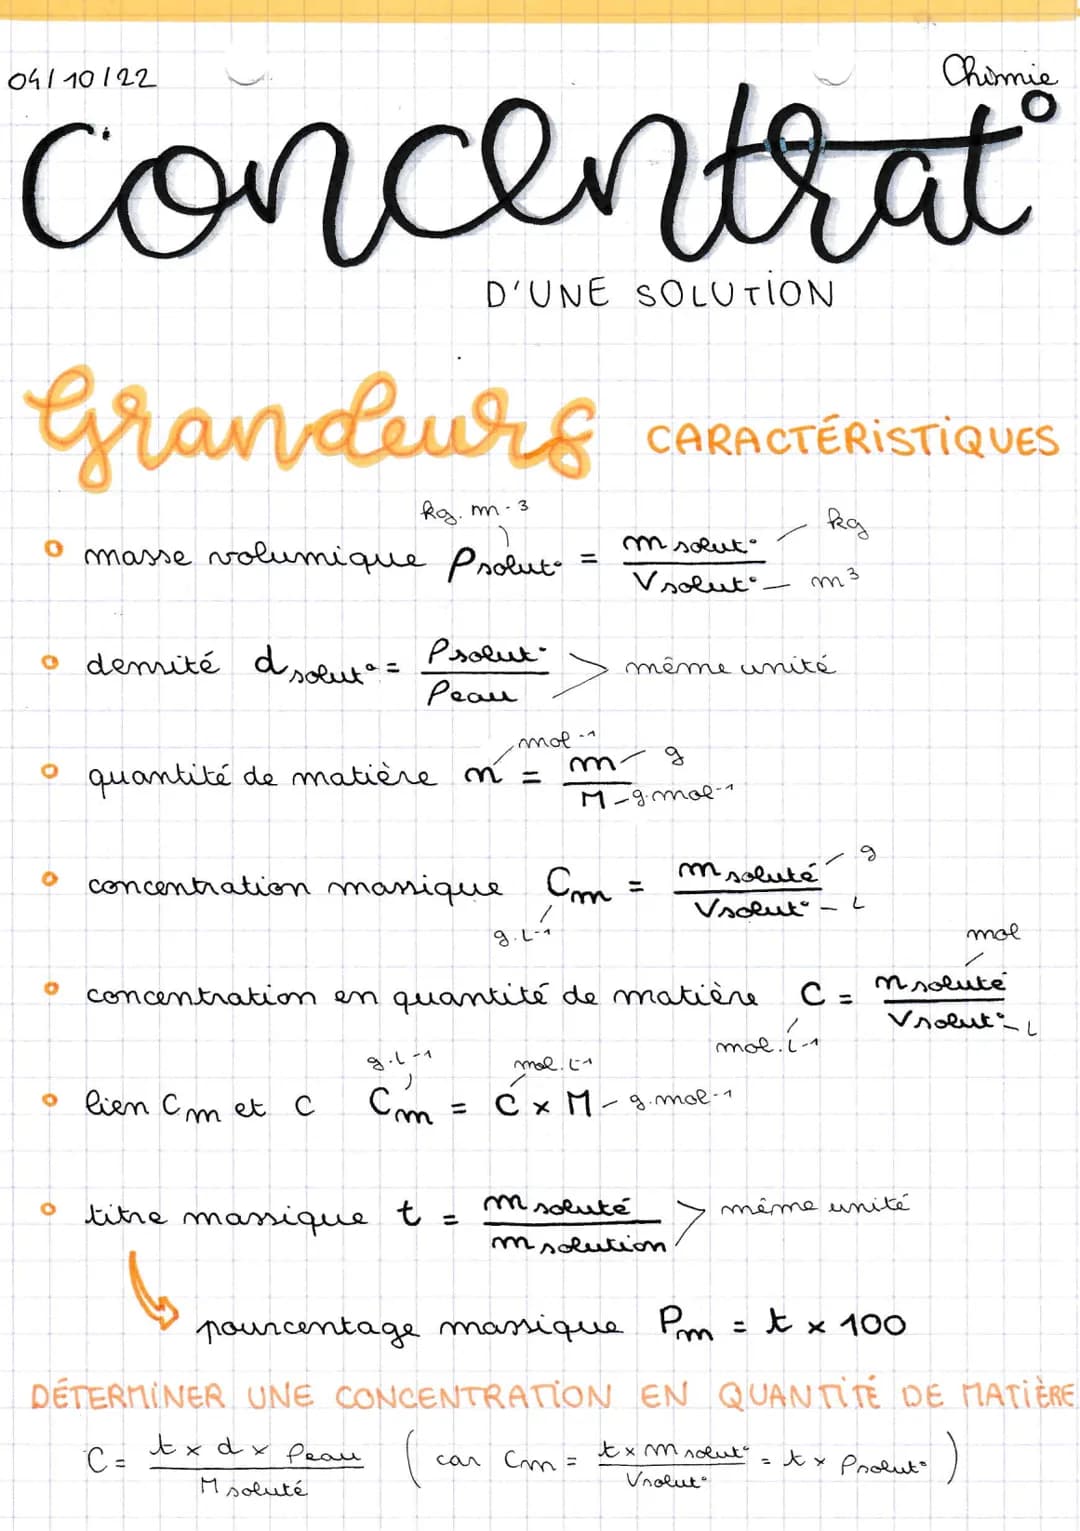 04/10/22 Chimie
Concentrat°
D'UNE SOLUTION
Grandeurs CARACTÉRISTIQUES
kg.m-3
masse volumique ρsolut° = m solut° / V solut° kg m³
densité d solut° = ρsolut° / ρeau > même unité
mol-1
quantité de matière n = m / M g g.mol-1
concentration massique Cm = m soluté / V solut° g L
g.L-1
mol
concentration en quantité de matière C = n soluté / V solut° L
mol.L-1
g.L-1 mol.L-1
lien Cm et C Cm = C x M - g.mol-1
titre massique t = m soluté / m solution > même unité
pourcentage massique Pm = t x 100
DÉTERMINER UNE CONCENTRATION EN QUANTITÉ DE MATIÈRE
C = t x d x ρeau / M soluté ( car Cm = t x m solut° / V solut° = t x ρsolut° )